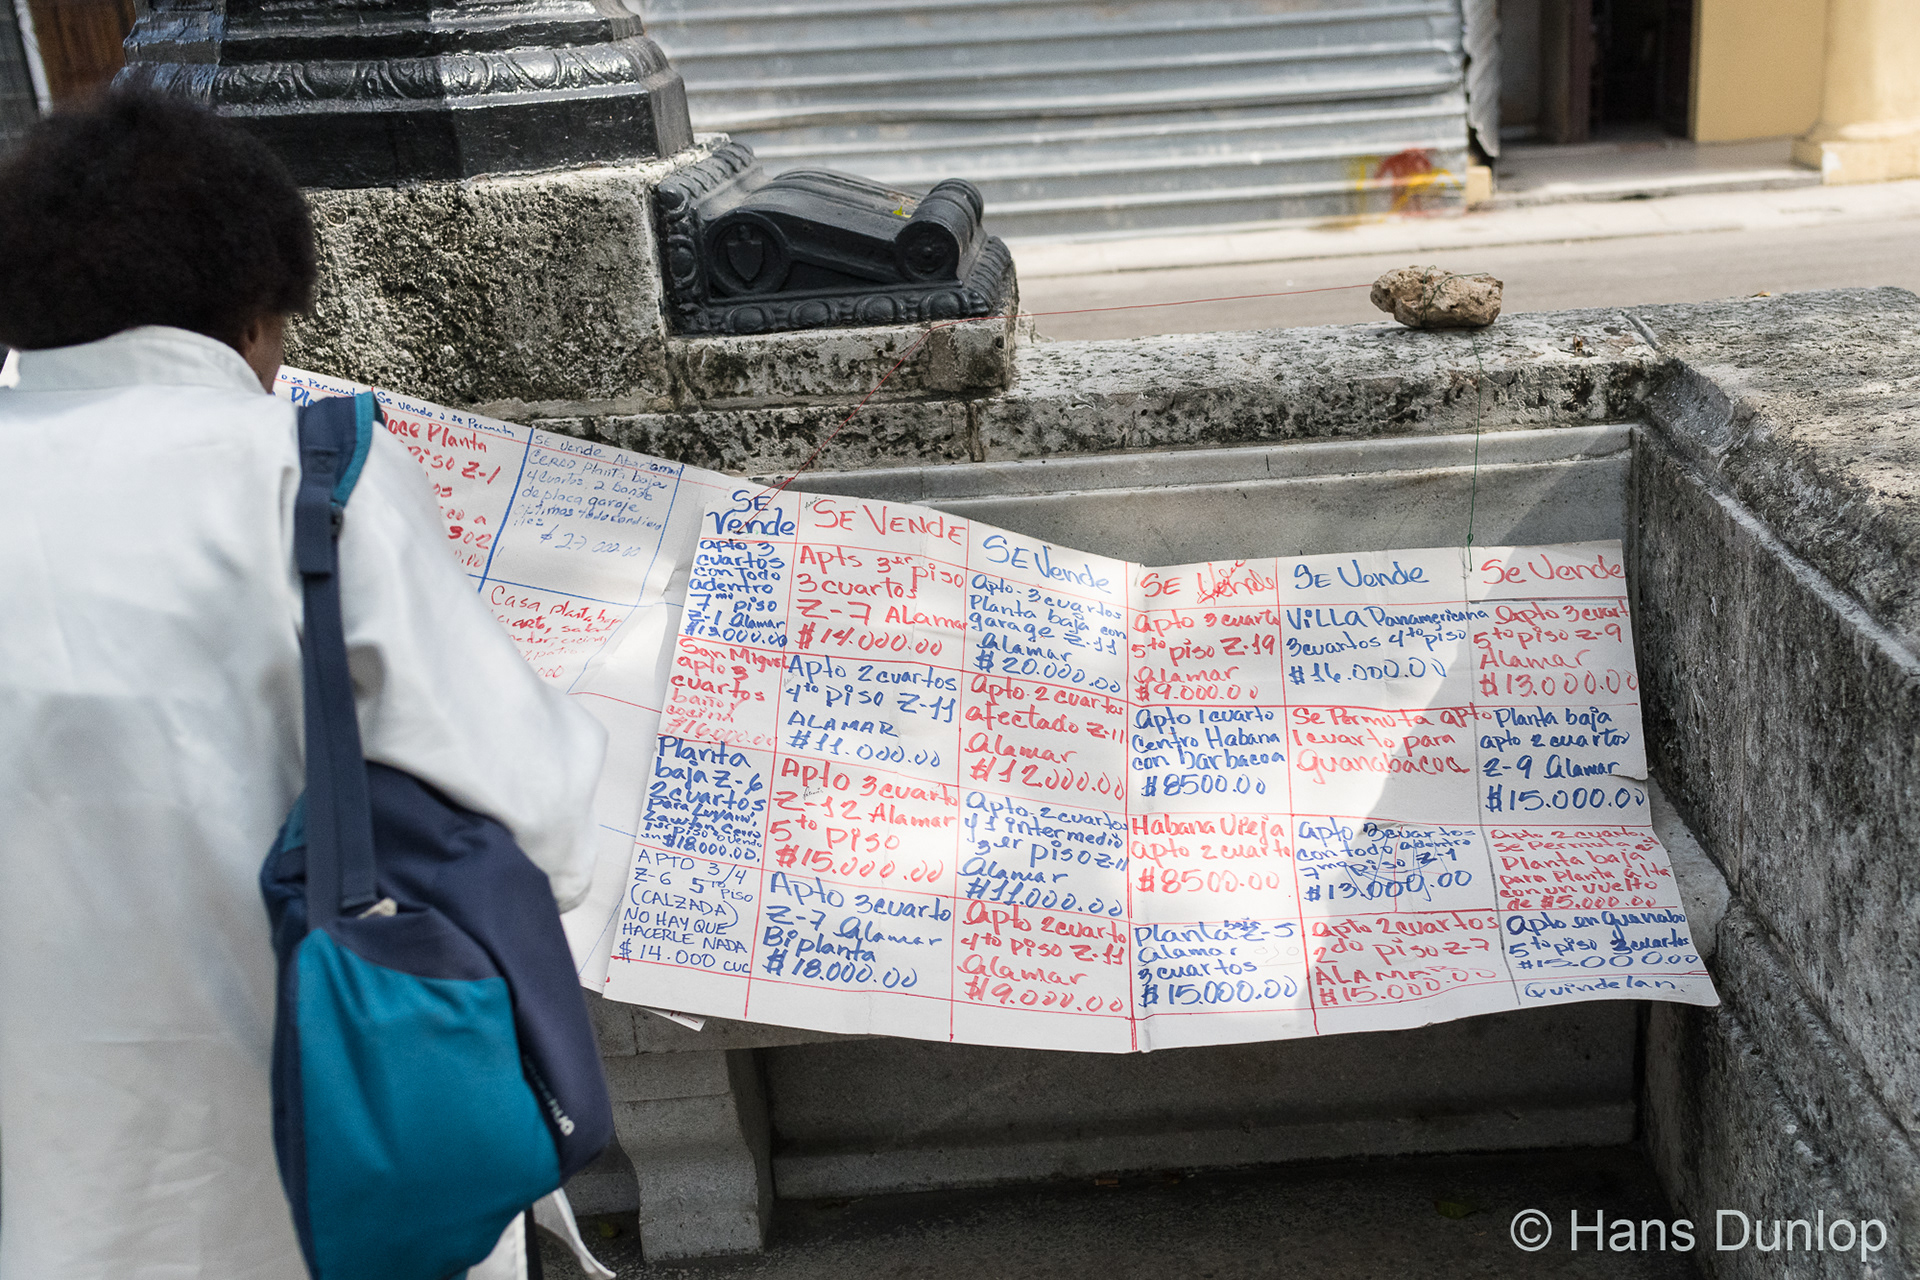 o se Permuta
Se vende o se Permuta
Planta
piso Z-1
302
SE Vende Apartamen
CERRO Planta baja
4 cuartos. 2 baños
de placa garaje
optimas
$ 27 000.00
Casa planta baja
SE
Vende
apto 3
cuartos
con todo
adentro
7mo piso
Z-1 Alamar
$13000.00
San Miguel
apto 3
cuartos
baño y
cocina
$16000.00
Planta
baja Z-6
2 cuartos
$18000.00.
APTO 3/4
Z-6 5TO PISO
(CALZADA)
NO HAY QUE
HACERLE NADA
$14.000 CUC
SE VENDE
Apts 3er piso
3 cuartos
Z-7 Alamar
$14.000.00
Apto 2 cuartos
4to piso Z-11
ALAMAR
$11.000.00
Apto 3 cuarto
Z-12 Alamar
5to piso
$15.000.00
Apto 3 cuarto
Z-7 Alamar
Biplanta
$18.000.00
SE Vende
Apto. 3 cuartos
Planta baja con
garage Z-11
Alamar
$20.000.00
Apto. 2 cuartos
afectado Z-11
Alamar
$12000.00
Apto. 2 cuartos
y 1 intermedio
3er piso Z-11
Alamar
$11.000.00
Apto 2 cuarto
4to piso Z.11
Alamar
$9.000.00
SE Vende
Apto 3 cuarto
5to piso Z.19
Alamar
$9.000.00
Apto 1 cuarto
Centro Habana
con barbacoa
$8500.00
Habana Vieja
Apto 2 cuarto
$8500.00
Planta baja Z-5
Alamar
3 cuartos
$15.000.00
SE Vende
VILLA Panamericana
3 cuartos 4to piso
$16.000.00
Se Permuta apto
1 cuarto para
Guanabacoa
Apto 3 cuartos
con todo adentro
7mo piso Z-1
$13.000.00
Apto 2 cuartos
2do piso Z-7
ALAMAR
$15.000.00
Se Vende
Apto 3 cuart
5to piso Z-9
Alamar
$13.000.00
Planta baja
apto 2 cuartos
Z-9 Alamar
$15.000.00
Apto 2 cuartos
Se Permuta
Planta baja
para Planta alta
con un vuelto
de $5.000.00
Apto en Guanabo
5to piso 3 cuartos
$15.000.00
Quindelan.
© Hans Dunlop